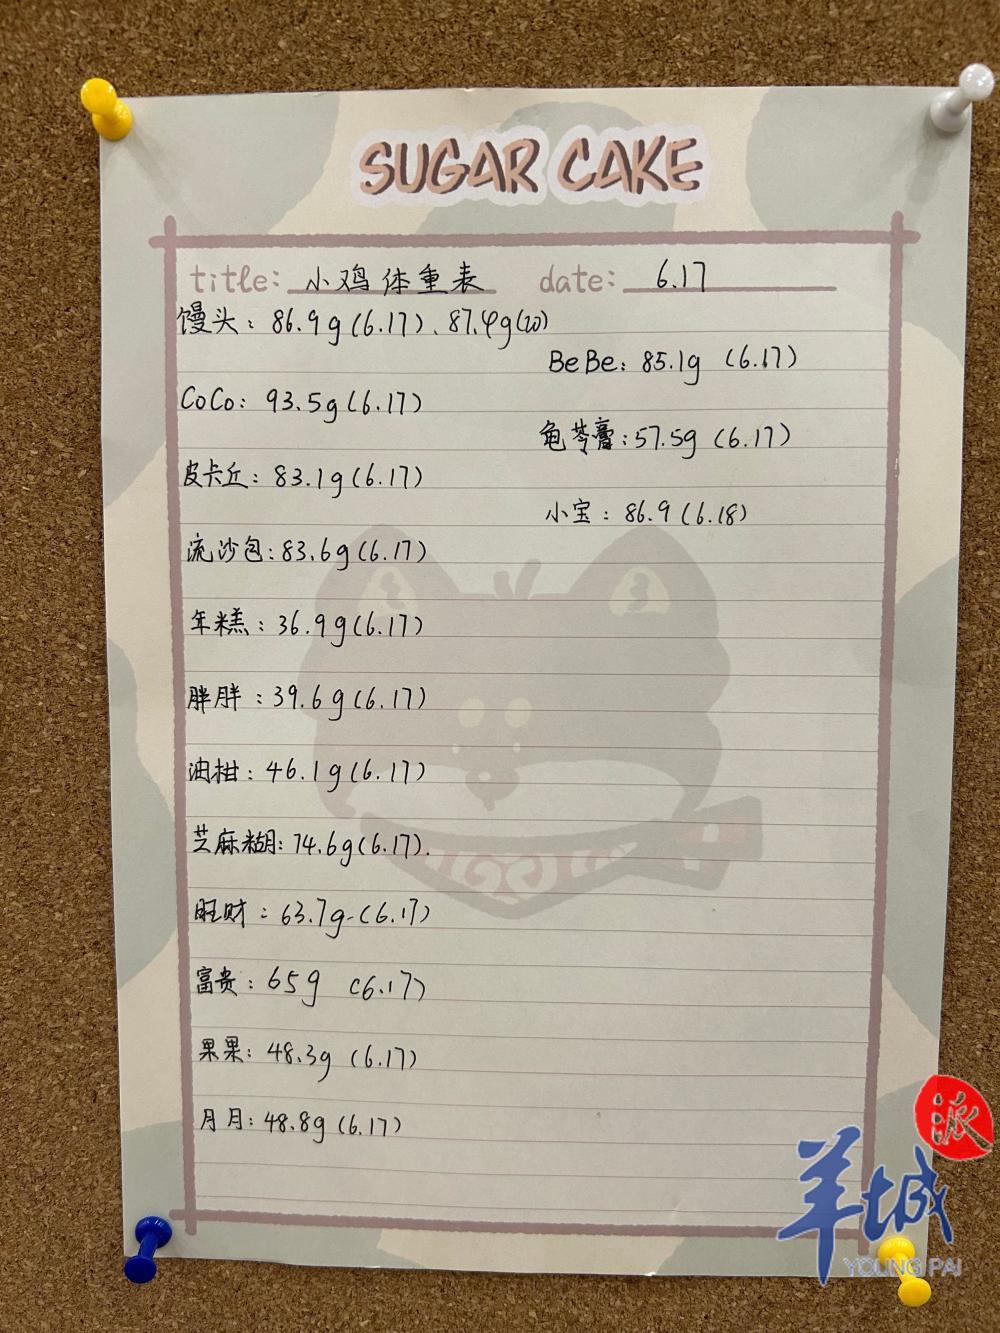 SUGAR CAKE
title: 小鸡体重表 date: 6.17
馒头：86.9g(6.17)、87.4g(20)
BeBe：85.1g (6.17)
CoCo：93.5g(6.17)
龟苓膏：57.5g (6.17)
皮卡丘：83.1g(6.17)
小宝：86.9(6.18)
流沙包：83.6g(6.17)
年糕：36.9g(6.17)
胖胖：39.6g(6.17)
油柑：46.1g(6.17)
芝麻糊：74.6g(6.17).
旺财：63.7g-(6.17)
富贵：65g (6.17)
果果：48.3g (6.17)
月月：48.8g(6.17)
羊城派
YOUNG PAI